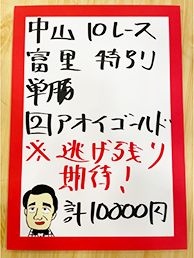 中山 10レース
富里 特別
単勝
2 アオイゴールド
※ 逃げ残り
期待!
計10000円